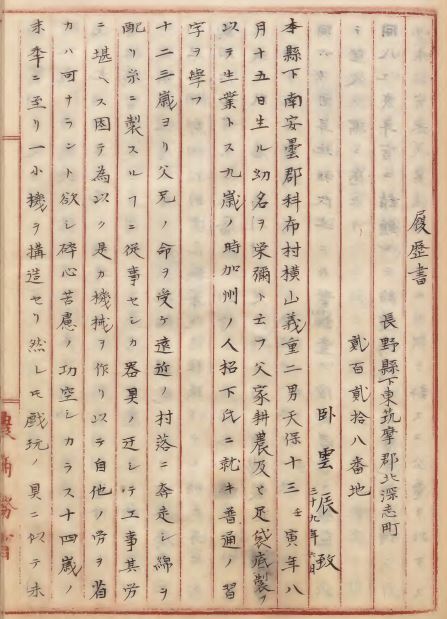 履歴書
長野縣下東筑摩郡北深志町
貳百貳拾八番地
臥雲辰致
三十九年六月
本縣下南安曇郡科布村横山義重二男天保十三壬寅年八
月十五日生ル幼名ヲ栄彌ト云フ父家耕農及ヒ足袋底製ヲ
以テ生業トス九歳ノ時加州ノ人招下氏ニ就キ普通ノ習
字ヲ學フ
十二三歳ヨリ父兄ノ命ヲ受ケ遠近ノ村落ニ奔走シ綿ヲ
配リ糸ニ製スルヿニ從事セシカ器具ノ迂ニシテ工事其労
ニ堪ヘス因テ為以ク是カ機械ヲ作リ以テ自他ノ労ヲ省
カハ可ナラント欲シ碎心苦慮ノ功空シカラス十四歳ノ
末季ニ至リ一小機ヲ構造セリ然レ𪜈戲玩ノ具ニ似テ未
農商務省